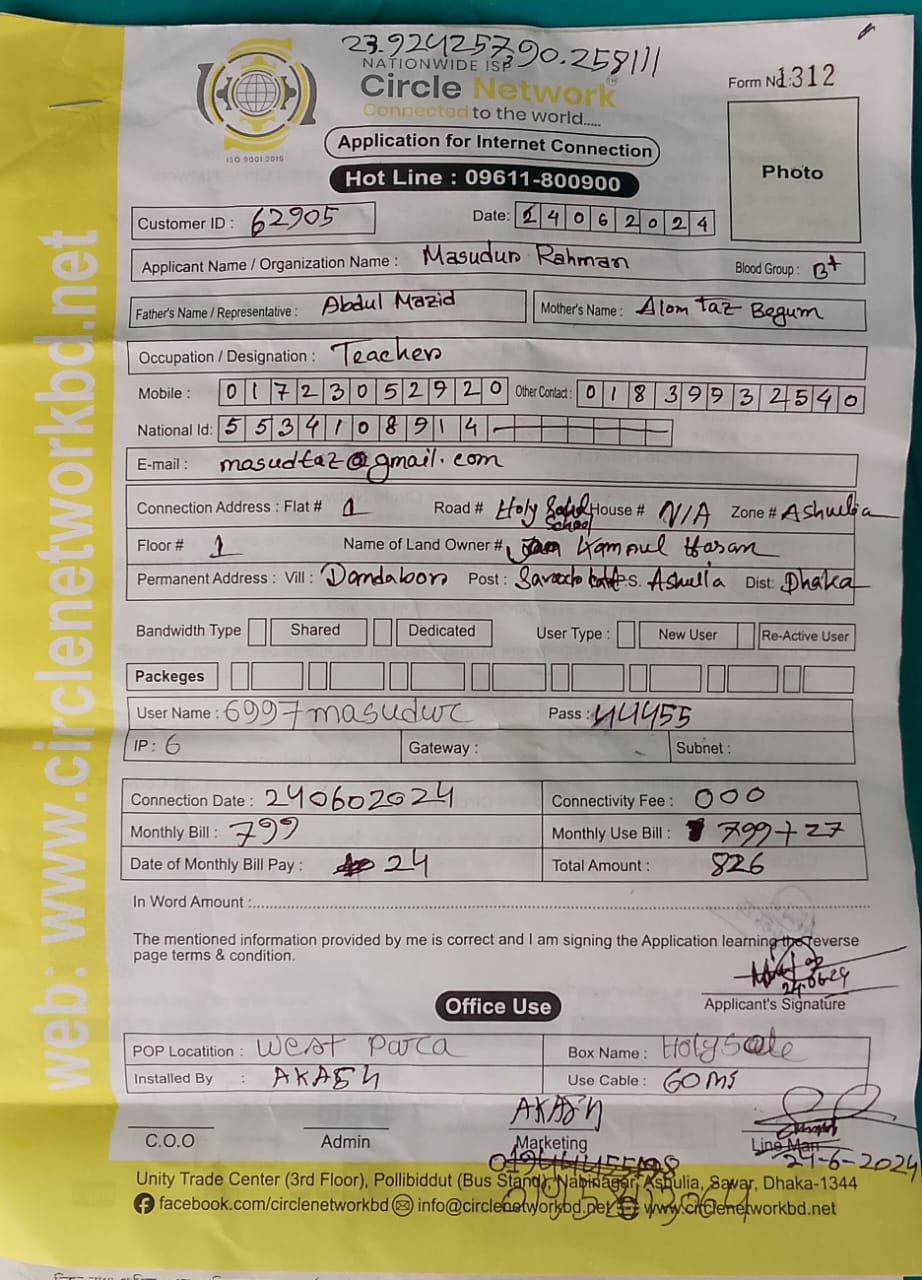 23.924257,90.258111
NATIONWIDE ISP
Circle Network
Connected to the world.....
Form No 1312
ISO 9001:2015
Application for Internet Connection
Hot Line : 09611-800900
Photo
Customer ID : 62905 Date: 24062024
Applicant Name / Organization Name : Masudur Rahman Blood Group : B+
Father's Name / Representative : Abdul Mazid Mother's Name : Alom Taz Begum
Occupation / Designation : Teacher
Mobile : 01723052920 Other Contact : 01839932540
National Id: 5534108914
E-mail : masudtaz@gmail.com
Connection Address : Flat # 1 Road # Holy School House # N/A Zone # Ashulia
Floor # 1 Name of Land Owner # Kamrul Hasan
Permanent Address : Vill : Dondabor Post : P.S. Ashulia Dist: Dhaka
Bandwidth Type Shared Dedicated User Type : New User Re-Active User
Packeges
User Name : 6997masudwc Pass : 44455
IP : 6 Gateway : Subnet :
Connection Date : 240602024 Connectivity Fee : 000
Monthly Bill : 799 Monthly Use Bill : 799+27
Date of Monthly Bill Pay : 24 Total Amount : 826
In Word Amount :
The mentioned information provided by me is correct and I am signing the Application learning the reverse
page terms & condition.
24.06.24
Applicant's Signature
Office Use
POP Locatition : West Para Box Name : Holy
Installed By : AKASH Use Cable : 60 ms
AKASH
C.O.O Admin Marketing Line Man
24-6-2024
Unity Trade Center (3rd Floor), Pollibiddut (Bus Stand), Nabinagar, Ashulia, Savar, Dhaka-1344
facebook.com/circlenetworkbd info@circlenetworkbd.net www.circlenetworkbd.net
web: www.circlenetworkbd.net